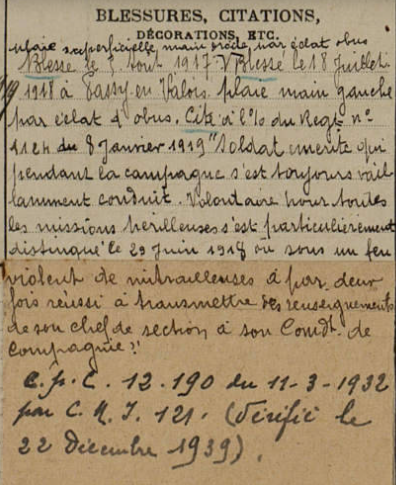 BLESSURES, CITATIONS,
DÉCORATIONS, ETC.
plaie superficielle, main droite, par éclat obus
Blessé le 5 Aout 1917. Blessé le 18 Juillet
1918 à Passy en Valois plaie main gauche
par éclat d'obus. Cité à l'O. du Regt. n°
1124 du 8 Janvier 1919 "Soldat emérite qui
pendant la campagne s'est toujours vail
lamment conduit. Volontaire pour toutes
les missions périlleuses s'est particulièrement
distingué le 29 Juin 1918 où sous un feu
violent de mitrailleuses a par deux
fois réussi à transmettre des renseignements
de son chef de section à son Comdt. de
compagnie."
C. p. C. 12.190 du 11-3-1932
par C. R. J. 121. (Vérifié le
22 Décembre 1939).